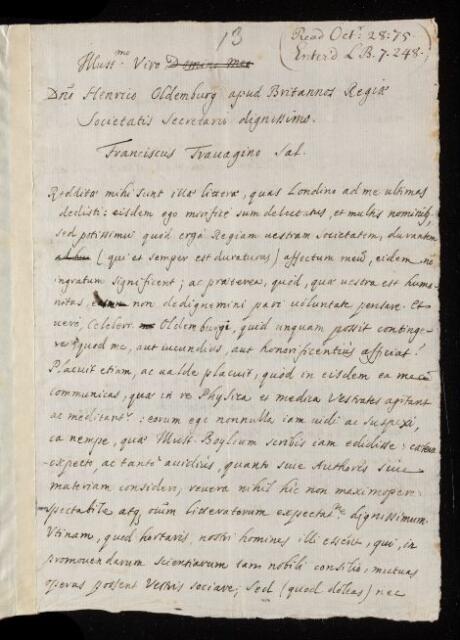 13
Read Octr. 28: 75.
Enter'd L B. 7. 248.
Illustmo. Viro Domino Meo
Dno Henrico Oldemburg apud Britannos Regiæ
Societatis Secretario dignissimo.
Franciscus Travagino Sal.
Redditæ mihi sunt illæ literæ, quas Londino ad me ultimas
dedisti: eisdem ego mirificè sum delectatus, et multis nominibus,
sed potissimum quòd ergà Regiam vestram Societatem, durantem
(qui et semper est duraturus) affectum meum, eidem non
ingratum significent; ac præterea quòd, quæ vestra est huma-
nitas, non dedignemini pari voluntate pensare. Et
verò, Celeberr. Oldemburgi, quid unquam possit continge-
re quod me, aut iucundius, aut honorificentius afficiat?
Placuit etiam, ac valde placuit, quòd in eisdem ea mecum
communicas, quæ in re Physica et medica Vestrates agitant
ac meditantr.: eorum ego nonnulla iam vidi ac suspexi,
ea nempe, quæ Illustr. Boylium scribis iam edidisse: cætera
expecto, ac tantò avidius, quantò sive Authoris sive
materiam considero, revera nihil hic non maximopere
spectabile atq; omnium litteratorum expectatne dignissimum.
Utinam, quod hortaris, nostri homines illi essent, qui, in
promovendarum scientiarum tam nobili consilio, mutuas
operas possent Vestris sociare; sed (quod doleas) nec